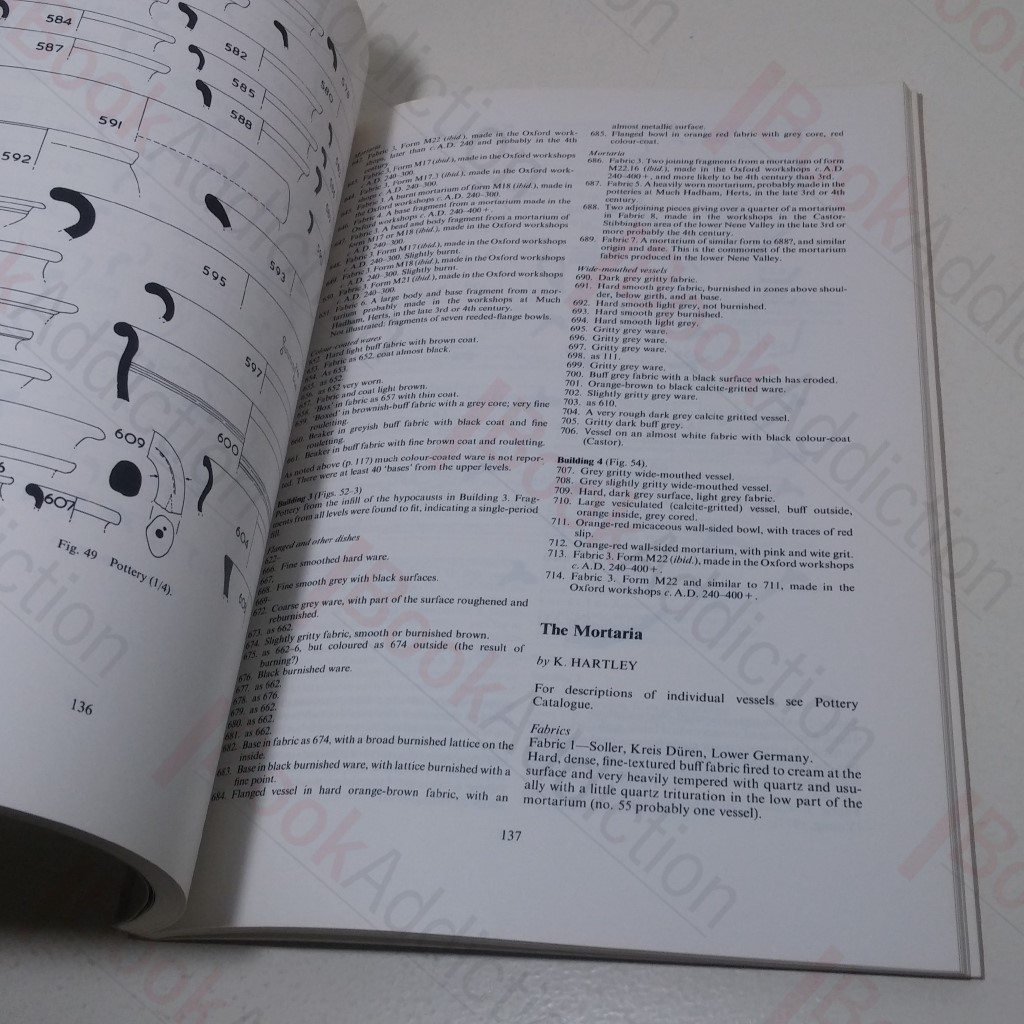 584
587
591
592
582
585
588
580
578
595
593
597
609
600
607
604
Fig. 49 Pottery (1/4).
136
Fabric 3, Form M22 (ibid.), made in the Oxford work-
shops, later than c.A.D. 240 and probably in the 4th
century.
Fabric 3, Form M17 (ibid.), made in the Oxford workshops
c.A.D. 240-300.
Fabric 3, Form M17.3 (ibid.), made in the Oxford work-
shops c.A.D. 240-300.
Fabric 3. A burnt mortarium of form M18 (ibid.), made in
the Oxford workshops c.A.D. 240-300.
Fabric 4. A base fragment from a mortarium made in the
Oxford workshops c.A.D. 240-400+.
Fabric 1. A bead and body fragment from a mortarium of
form M17 or M18 (ibid.), made in the Oxford workshops
A.D. 240-300.
Fabric 3. Form M17 (ibid.), made in the Oxford workshops
A.D. 240-300. Slightly burnt.
Fabric 3. Form M18 (ibid.), made in the Oxford workshops
A.D. 240-300. Slightly burnt.
Fabric 3. Form M21 (ibid.), made in the Oxford workshops
c.A.D. 240-300.
Fabric 6. A large body and base fragment from a mor-
tarium probably made in the workshops at Much
Hadham, Herts, in the late 3rd or 4th century.
Not illustrated: fragments of seven reeded-flange bowls.
Colour-coated wares
652. Hard light buff fabric with brown coat.
653. Fabric as 652, coat almost black.
654. As 653.
655. as 652.
as 652 very worn.
Fabric and coat light brown.
'Box' in fabric as 657 with thin coat.
'Boxed' in brownish-buff fabric with a grey core; very fine
rouletting.
660. Beaker in greyish buff fabric with black coat and fine
rouletting.
661. Beaker in buff fabric with fine brown coat and rouletting.
As noted above (p. 117) much colour-coated ware is not repor-
ted. There were at least 40 'bases' from the upper levels.
Building 3 (Figs. 52-3)
Pottery from the infill of the hypocausts in Building 3. Frag-
ments from all levels were found to fit, indicating a single-period
fill.
Flanged and other dishes
Fine smoothed hard ware.
666.
667.
668. Fine smooth grey with black surfaces.
669-
672. Coarse grey ware, with part of the surface roughened and
reburnished.
673. as 662.
674. Slightly gritty fabric, smooth or burnished brown.
675. as 662-6, but coloured as 674 outside (the result of
burning?)
676. Black burnished ware.
677. as 662.
678. as 676.
679. as 662.
680. as 662.
681. as 662.
682. Base in fabric as 674, with a broad burnished lattice on the
inside.
683. Base in black burnished ware, with lattice burnished with a
fine point.
684. Flanged vessel in hard orange-brown fabric, with an
almost metallic surface.
685. Flanged bowl in orange red fabric with grey core, red
colour-coat.
Mortaria
686. Fabric 3. Two joining fragments from a mortarium of form
M22.16 (ibid.), made in the Oxford workshops c.A.D.
240-400+, and more likely to be 4th century than 3rd.
687. Fabric 5. A heavily worn mortarium, probably made in the
potteries at Much Hadham, Herts, in the late 3rd or 4th
century.
688. Two adjoining pieces giving over a quarter of a mortarium
in Fabric 8, made in the workshops in the Castor-
Stibbington area of the lower Nene Valley in the late 3rd or
more probably the 4th century.
689. Fabric 7. A mortarium of similar form to 688?, and similar
origin and date. This is the commonest of the mortarium
fabrics produced in the lower Nene Valley.
Wide-mouthed vessels
690. Dark grey gritty fabric.
691. Hard smooth grey fabric, burnished in zones above shoul-
der, below girth, and at base.
692. Hard smooth light grey, not burnished.
693. Hard smooth grey burnished.
694. Hard smooth light grey.
695. Gritty grey ware.
696. Gritty grey ware.
697. Gritty grey ware.
698. as 111.
699. Gritty grey ware.
700. Buff grey fabric with a black surface which has eroded.
701. Orange-brown to black calcite-gritted ware.
702. Slightly gritty grey ware.
703. as 610.
704. A very rough dark grey calcite gritted vessel.
705. Gritty dark buff grey.
706. Vessel on an almost white fabric with black colour-coat
(Castor).
Building 4 (Fig. 54).
707. Grey gritty wide-mouthed vessel.
708. Grey slightly gritty wide-mouthed vessel.
709. Hard, dark grey surface, light grey fabric.
710. Large vesiculated (calcite-gritted) vessel, buff outside,
orange inside, grey cored.
711. Orange-red micaceous wall-sided bowl, with traces of red
slip.
712. Orange-red wall-sided mortarium, with pink and wite grit.
713. Fabric 3. Form M22 (ibid.), made in the Oxford workshops
c.A.D. 240-400+.
714. Fabric 3. Form M22 and similar to 711, made in the
Oxford workshops c.A.D. 240-400+.
The Mortaria
by K. HARTLEY
For descriptions of individual vessels see Pottery
Catalogue.
Fabrics
Fabric 1—Soller, Kreis Düren, Lower Germany.
Hard, dense, fine-textured buff fabric fired to cream at the
surface and very heavily tempered with quartz and usu-
ally with a little quartz trituration in the low part of the
mortarium (no. 55 probably one vessel).
137
BookAddiction